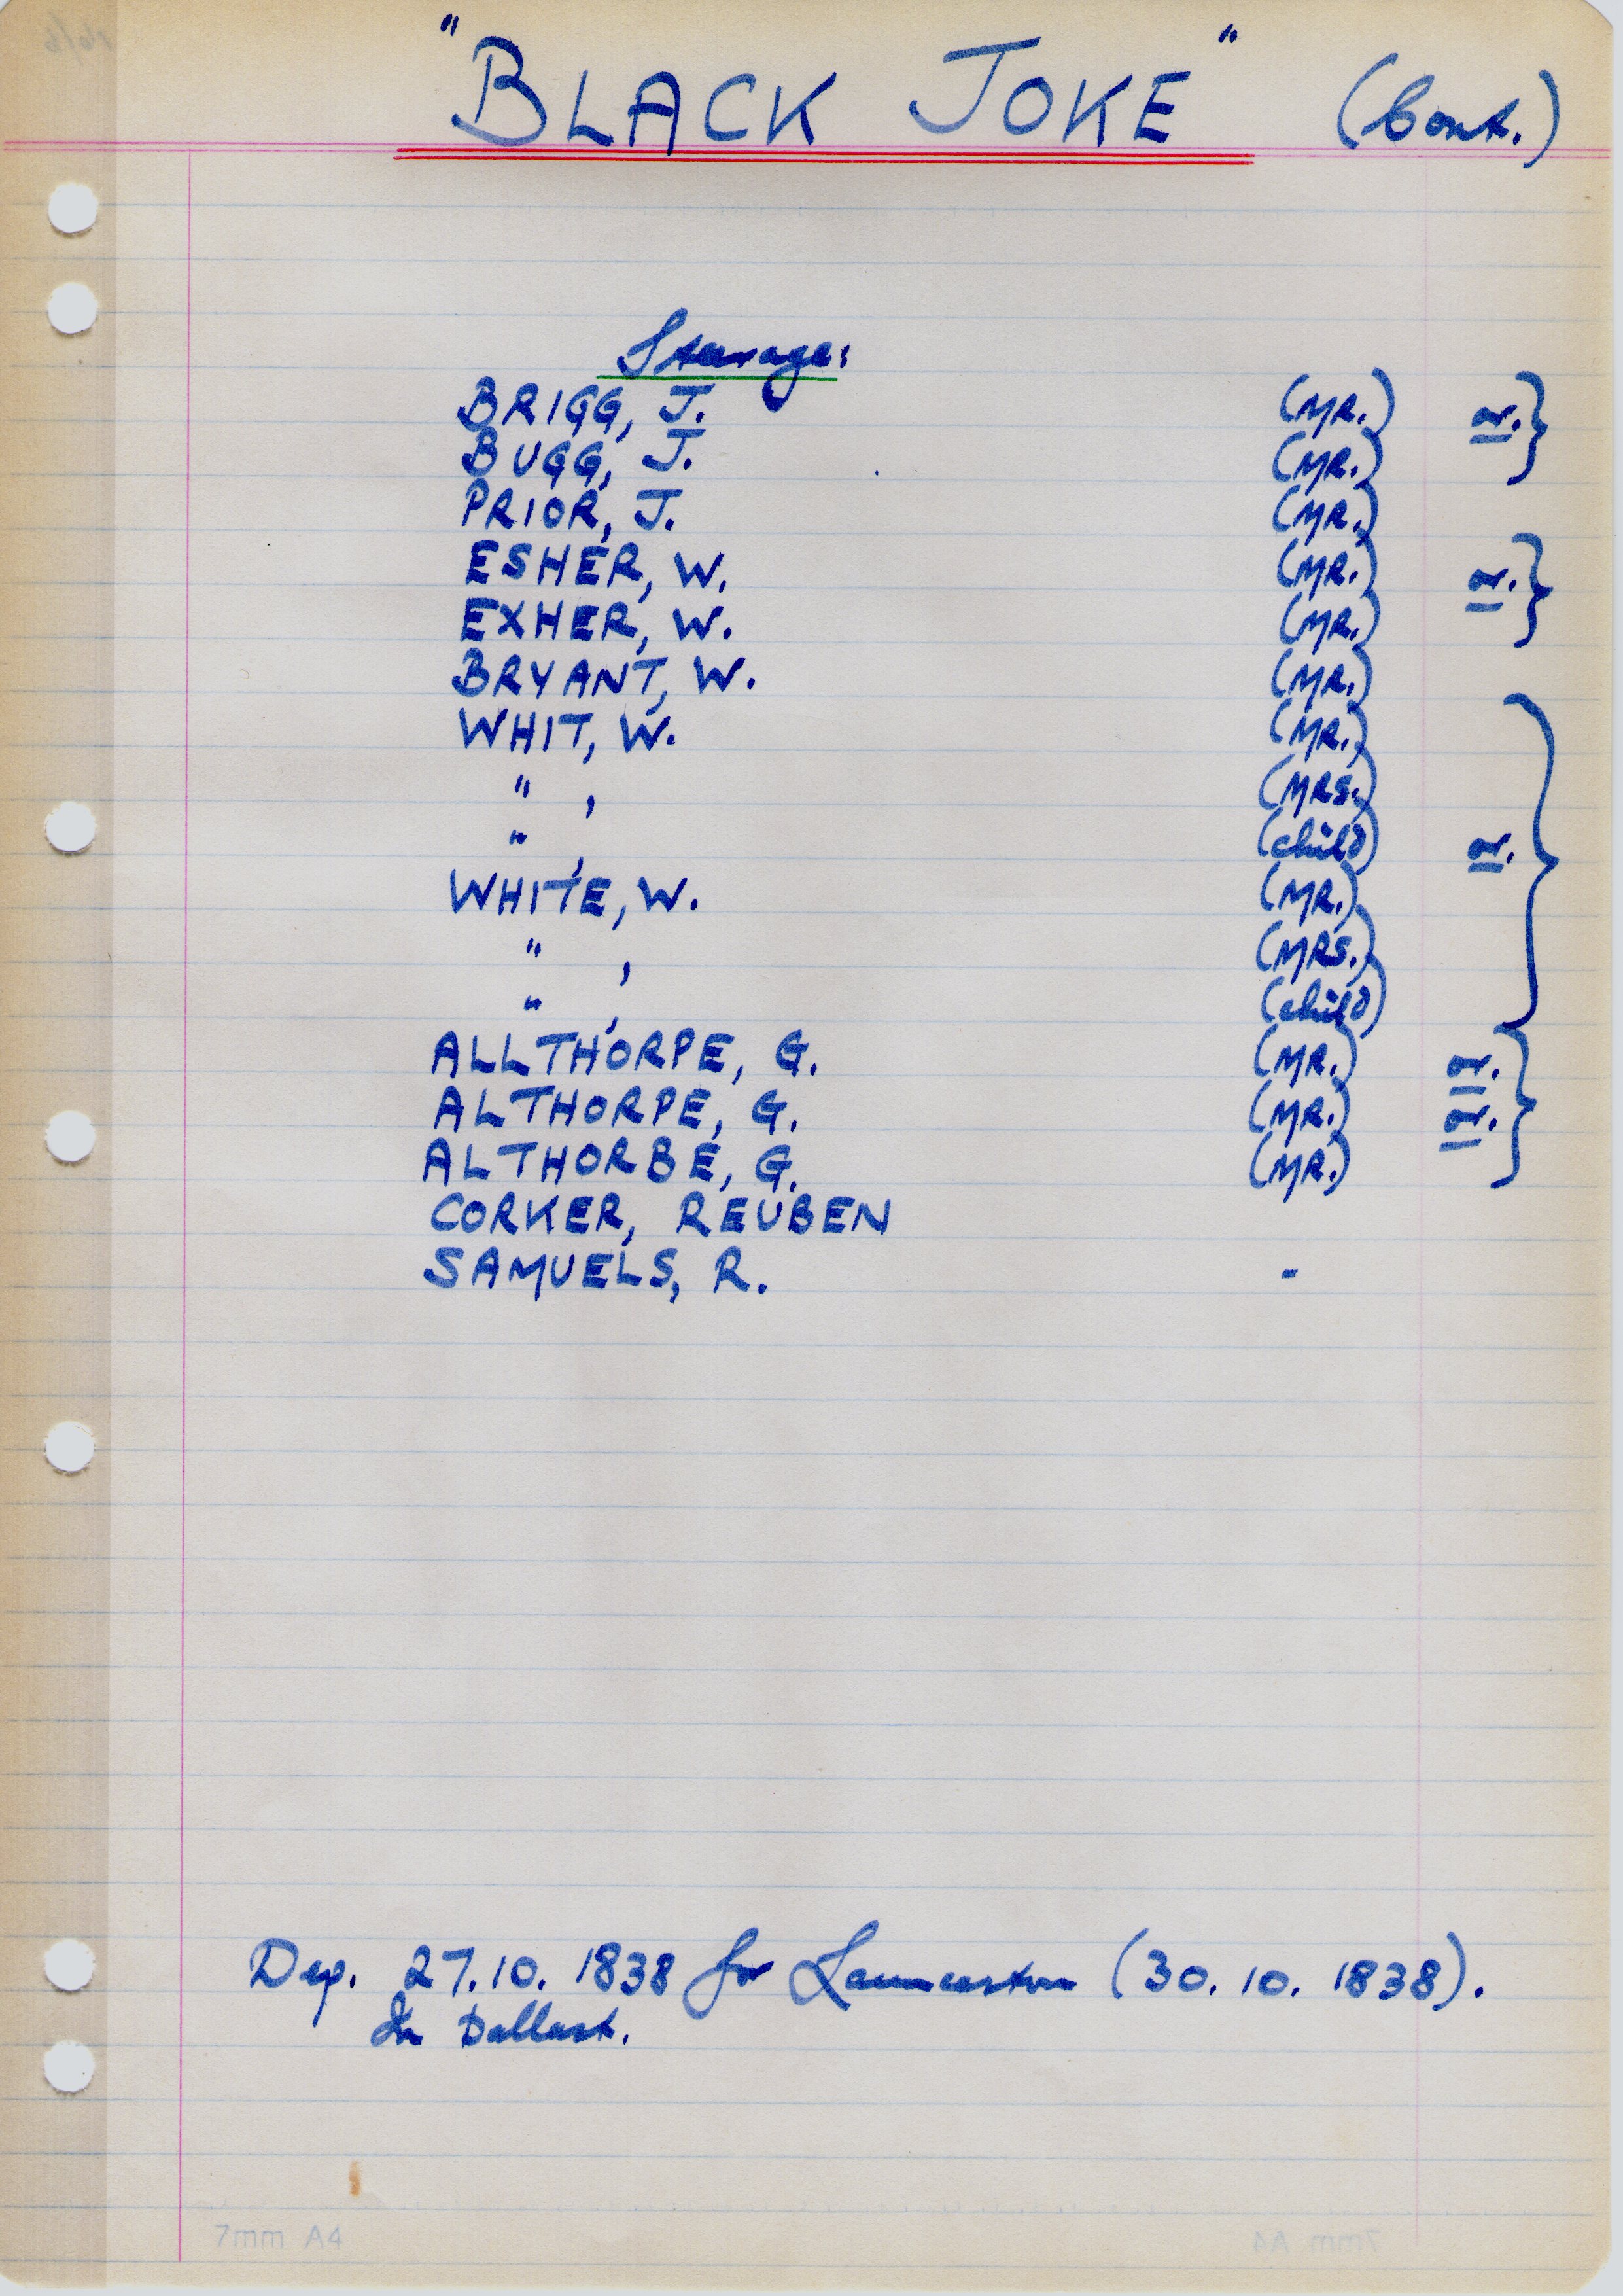 "BLACK JOKE" (Cont.)
Steerage:
BRIGG, J. (MR.) or. }
BUGG, J. (MR.)
PRIOR, J. (MR.)
ESHER, W. (MR.) or. }
EXHER, W. (MR.)
BRYANT, W. (MR.)
WHIT, W. (MR.)
" , (MRS.)
" , (child) or. }
WHITE, W. (MR.)
" , (MRS.)
" , (child)
ALLTHORPE, G. (MR.) or.
ALTHORPE, G. (MR.) or. }
ALTHORBE, G. (MR.)
CORKER, REUBEN
SAMUELS, R. -
Dep. 27.10.1838 for Launceston (30.10.1838).
In Ballast.
7mm A4
7mm A4